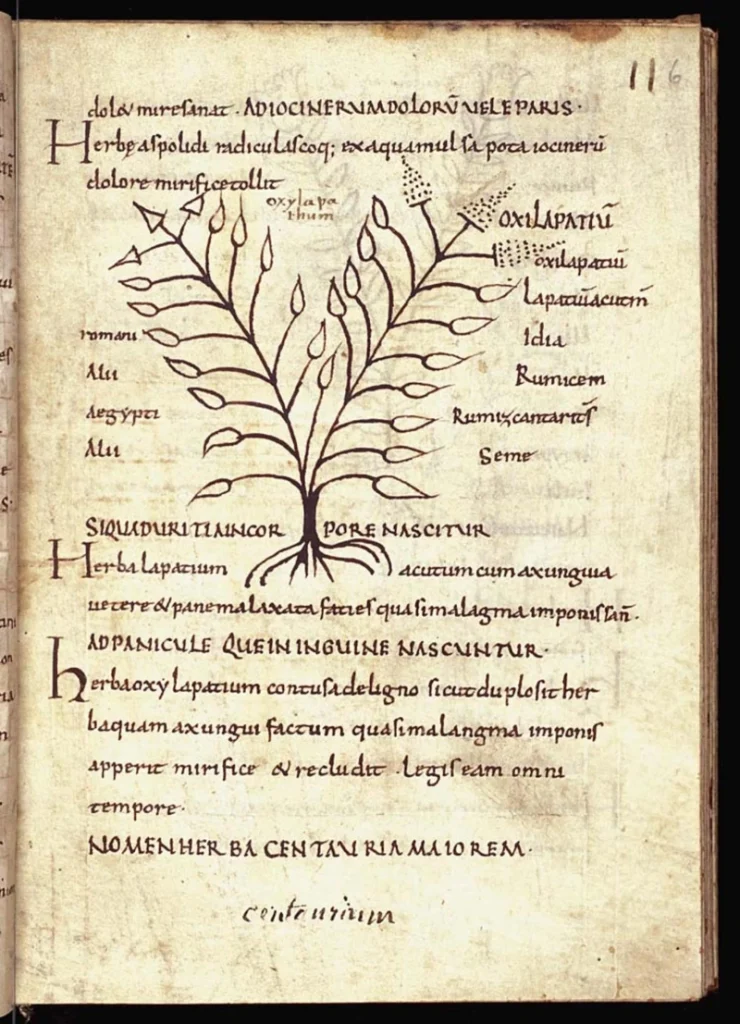 116
dolor& mire sanat · AD IOCINERUM DOLORŪ UEL EPARIS ·
Herbę aspolidi radiculas coq; ex aqua mulsa pota iocinerū
dolore mirifice tollit
oxylapa
thum
OXILAPATIŪ
oxilapatiū
Lapatiū acutm̄
romani
Idia
Alii
Rumicem
aegypti
Rumix cantarits̄
Alii
Seme
SI QUA DURITIA IN CORPORE NASCITUR
Herba lapatium acutum cum axungia
uetere & pane malaxata facies quasi malagma imponis san̄ ·
AD PANICULE QUE IN INGUINE NASCUNTUR ·
herba oxylapatium contusa deligno sicut duplo sit her
ba quam axungui factum quasi malangma imponis
apperit mirifice & recludit · legis eam omni
tempore ·
NOMEN HERBA CENTAURIA MAIOREM ·
centaurium